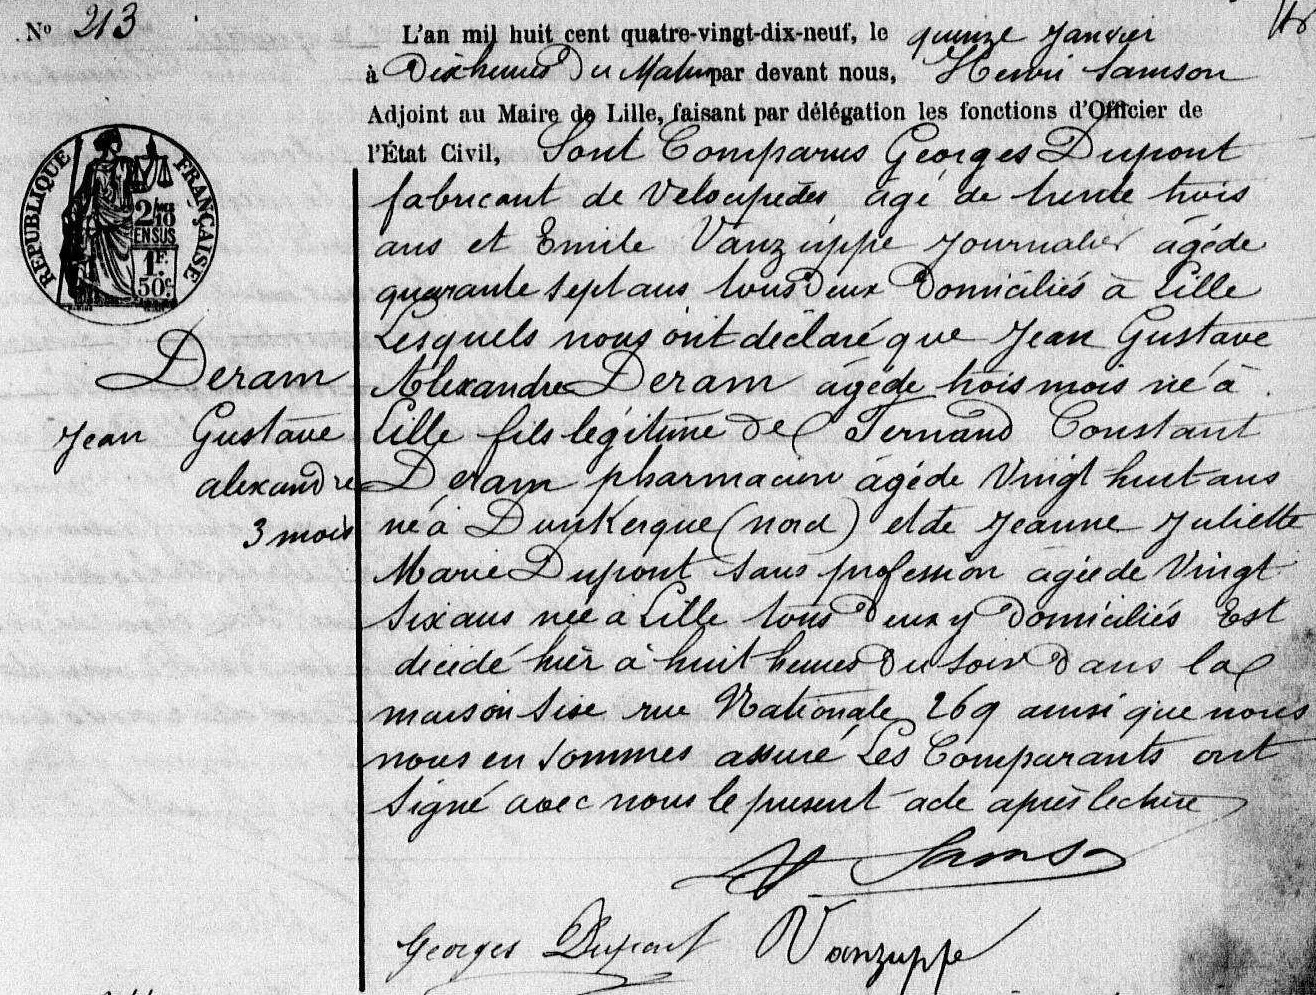 No 213
48
L'an mil huit cent quatre-vingt-dix-neuf, le quinze Janvier
à Dix heures Du Matin par devant nous, Henri Samson
Adjoint au Maire de Lille, faisant par délégation les fonctions d'Officier de
l'État Civil, Sont Comparus Georges Dupont
fabricant de Vélocipèdes agé de trente trois
ans et Emile Vanzuppe Journalier âgé de
quarante sept ans tous Deux Domiciliés à Lille
Lesquels nous ont déclaré que Jean Gustave
Alexandre Deram âgé de trois mois né à
Lille fils légitime de Fernand Constant
Deram pharmacien âgé de Vingt huit ans
né à Dunkerque (nord) et de Jeanne Juliette
Marie Dupont sans profession agée de Vingt
six ans née à Lille tous Deux y Domiciliés Est
décédé hier à huit heures Du soir Dans la
maison sise rue Nationale 269 ainsi que nous
nous en sommes assuré Les Comparants ont
signé avec nous le présent acte après lecture
RÉPUBLIQUE FRANÇAISE
2/10
EN SUS
1F.
50c
Deram
Jean Gustave
alexandre
3 mois
H Samson
Georges Dupont Vanzuppe